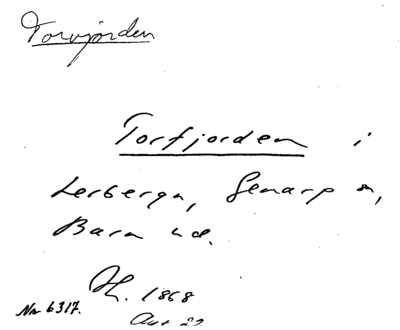 Torvjorden
Torfjorden i
Lerberga, Genarp sn,
Bara hd.
H. 1868
Nr 6317.